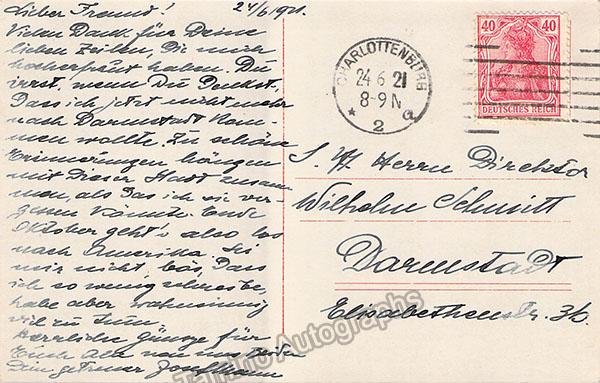 Lieber Freund! 24/6 1921.
Vielen Dank für Deine
lieben Zeilen, Die mich
hocherfreut haben. Du
irrst, wenn Du Denkst,
Dass ich jetzt nicht mehr
nach Darmstadt kom-
men wollte. Zu schöne
Erinnerungen hängen
mit Dieser Stadt zusam
men, als Das ich sie ver-
gessen könnte. Ende
Oktober geht's also los
nach Amerika. Sei
mir nicht bös, Dass
ich so wenig schreibe,
habe aber wahnsinnig
viel zu tun.
Herzliche Grüsse für
Euch Alle von uns beiden
Dein getreuer
CHARLOTTENBURG
24.6.21
8-9 N
* 2 a
40 40
DEUTSCHES REICH
S. H. Herrn Direktor
Wilhelm Schmitt
Darmstadt
Elisabethenstr. 36.
Tamino Autographs